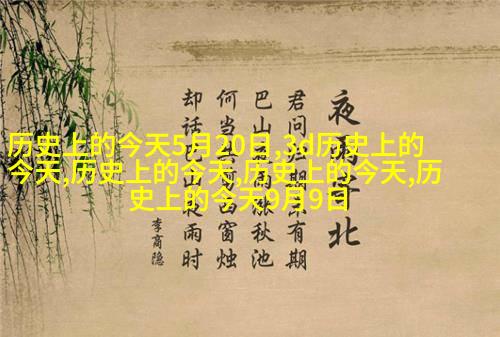 历史上的今天5月20日,3d历史上的
今天,历史上的今天,历史上的今天,历
史上的今天9月9日
夜雨北
君问有期
巴山涨秋池
何当窗烛
却话夜雨时
李商隐